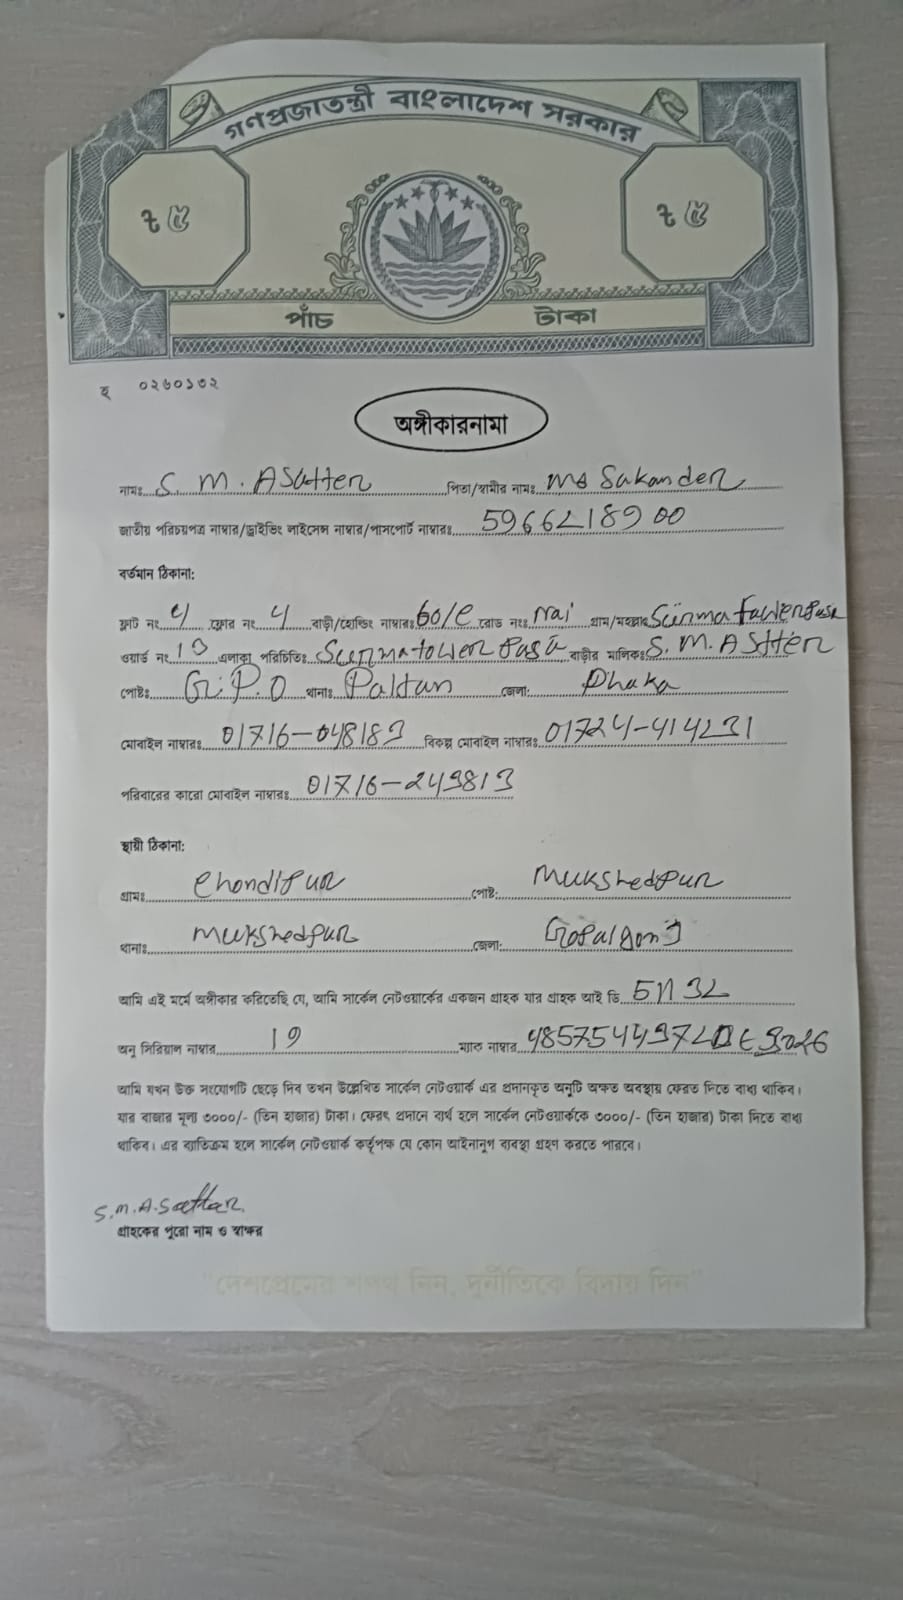 গণপ্রজাতন্ত্রী বাংলাদেশ সরকার
৳ ৫ ৳ ৫
পাঁচ টাকা
হ ০২৬০১৩২
অঙ্গীকারনামা
নামঃ S. M. A Satter পিতা/স্বামীর নামঃ Md Sakander
জাতীয় পরিচয়পত্র নাম্বার/ড্রাইভিং লাইসেন্স নাম্বার/পাসপোর্ট নাম্বারঃ 5966218900
বর্তমান ঠিকানা:
ফ্লাট নং 4 ফ্লোর নং 4 বাড়ী/হোল্ডিং নাম্বারঃ 60/C রোড নংঃ Nai গ্রাম/মহল্লাঃ
ওয়ার্ড নং 13 এলাকা পরিচিতিঃ বাড়ীর মালিকঃ S. M. A Stter
পোষ্টঃ G.P.O থানাঃ Paltan জেলা: Dhaka
মোবাইল নাম্বারঃ 01716-048183 বিকল্প মোবাইল নাম্বারঃ 01724-414231
পরিবারের কারো মোবাইল নাম্বারঃ 01716-243813
স্থায়ী ঠিকানা:
গ্রামঃ Chondipur পোষ্ট: Mukshedpur
থানাঃ Mukshedpur জেলা: Gopalgonj
আমি এই মর্মে অঙ্গীকার করিতেছি যে, আমি সার্কেল নেটওয়ার্কের একজন গ্রাহক যার গ্রাহক আই ডি
অনু সিরিয়াল নাম্বার 19 ম্যাক নাম্বার
আমি যখন উক্ত সংযোগটি ছেড়ে দিব তখন উল্লেখিত সার্কেল নেটওয়ার্ক এর প্রদানকৃত অনুটি অক্ষত অবস্থায় ফেরত দিতে বাধ্য থাকিব।
যার বাজার মূল্য ৩০০০/- (তিন হাজার) টাকা। ফেরৎ প্রদানে ব্যর্থ হলে সার্কেল নেটওয়ার্ককে ৩০০০/- (তিন হাজার) টাকা দিতে বাধ্য
থাকিব। এর ব্যতিক্রম হলে সার্কেল নেটওয়ার্ক কর্তৃপক্ষ যে কোন আইনানুগ ব্যবস্থা গ্রহণ করতে পারবে।
S.M.A.Sattar
গ্রাহকের পুরো নাম ও স্বাক্ষর
"দেশপ্রেমের শপথ নিন, দুর্নীতিকে বিদায় দিন"